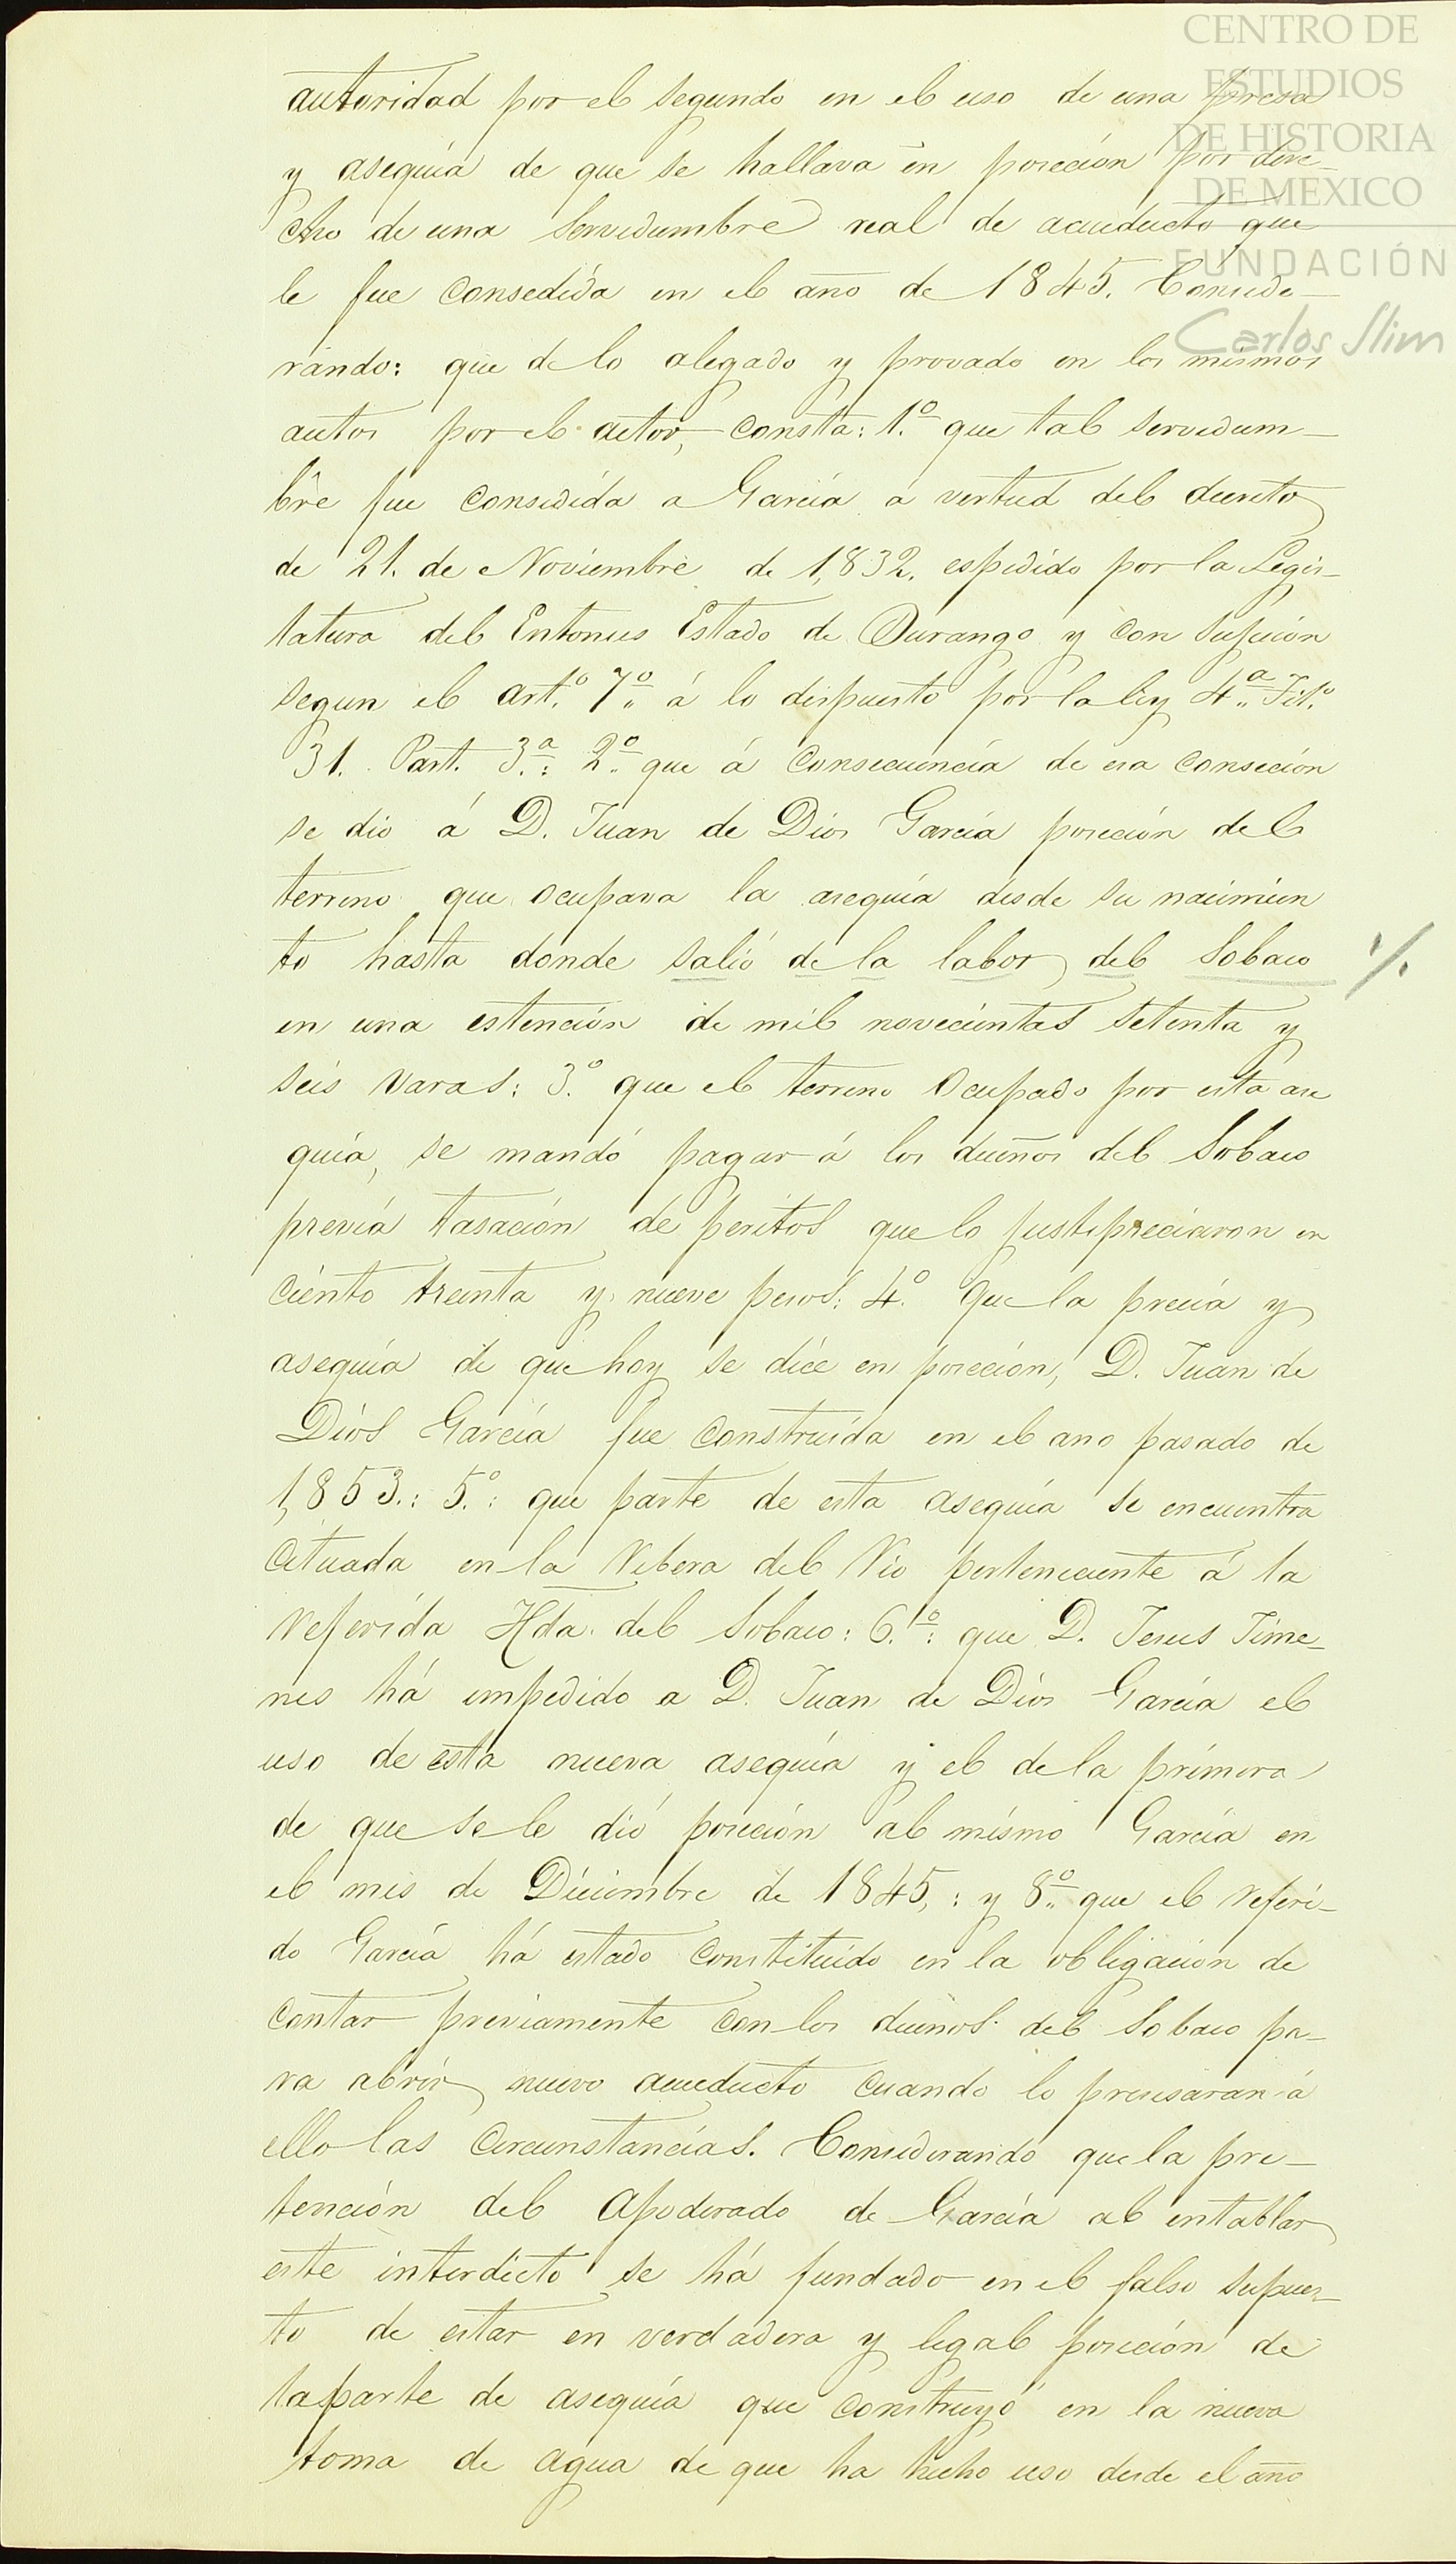 CENTRO DE
ESTUDIOS
DE HISTORIA
DE MEXICO
FUNDACIÓN
Carlos Slim
autoridad por el segundo en el uso de una presa
y asequia de que se hallava en poseción por dere-
cho de una servidumbre real de acueducto que
le fue consedida en el año de 1845. Conside-
rando: que de lo alegado y provado en los mismos
autos por el actor, consta: 1.º que tal servidum-
bre fue consedida a García á vertud del decreto
de 21. de Noviembre de 1,832. espedido por la Legis-
latura del Entonces Estado de Durango y con sujeción
segun el art.º 7º á lo dispuesto por la ley 4ª Tit.º
31. Part. 3.ª: 2.º que á consecuencia de esa conseción
se dio á D. Juan de Dios García poseción del
terreno que ocupava la asequia desde su nacimien
to hasta donde salió de la labor del Sobaco
en una estención de mil novecientas setenta y
seis varas: 3.º que el terreno ocupado por esta ase
quia, se mandó pagar á los dueños del Sobaco
previa tasación de peritos que lo justipreciaron en
ciento treinta y nueve pesos: 4.º Que la precia y
asequia de que hoy se dice en poseción, D. Juan de
Dios García fue construida en el ano pasado de
1,853.: 5.º: que parte de esta asequia se encuentra
cituada en la Ribera del Rio perteneciente á la
referida Hda. del Sobaco: 6.º: que D. Jesus Jime-
nes há impedido a D. Juan de Dios García el
uso de esta nueva asequia y el de la primera
de que se le dió poseción al mismo García en
el mes de Diciembre de 1845,: y 8º que el referi-
do García há estado constituido en la obligación de
contar previamente con los duenos del Sobaco pa-
ra abrir nuevo acueducto cuando lo precisaran á
ello las circunstancias. Considerando que la pre-
tención del apoderado de García al entablar
este interdicto se há fundado en el falso supues-
to de estar en verdadera y legal poseción de
la parte de asequia que construyó en la nueva
toma de agua de que ha hecho uso desde el año